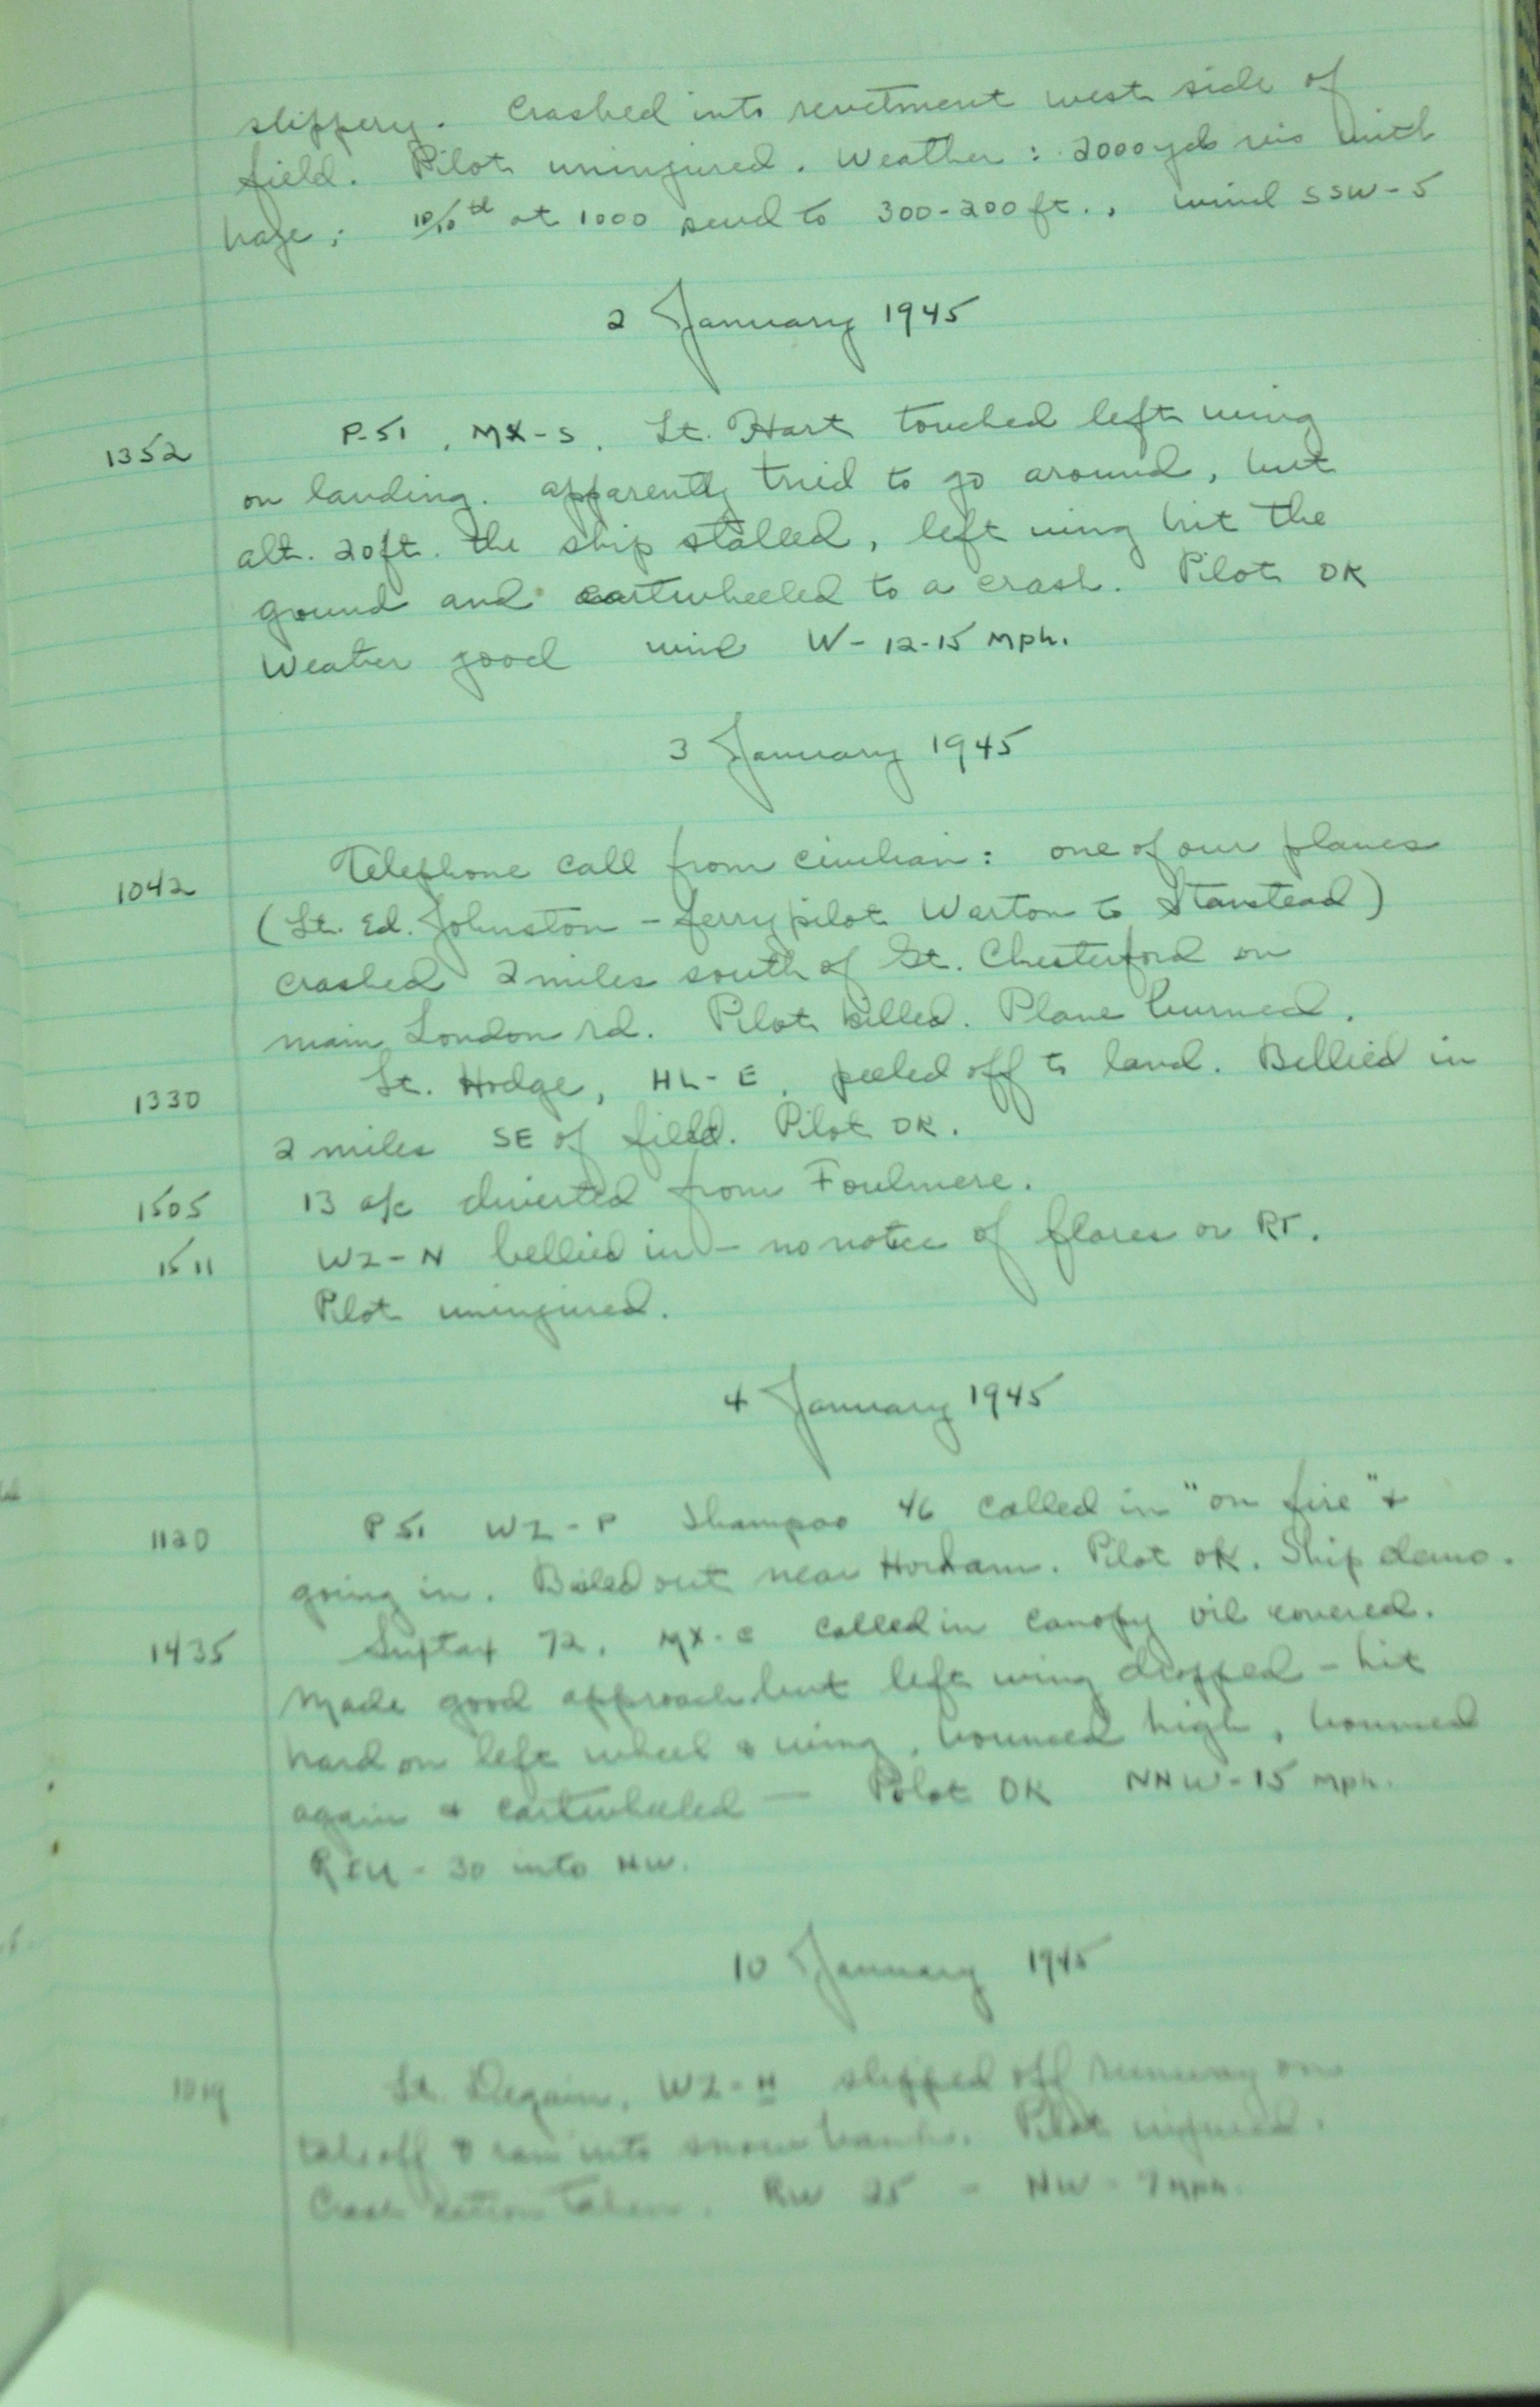 slippery. Crashed into revetment west side of
field. Pilot uninjured. Weather: 2000 yds vis with
haze; 10/10th at 1000 scud to 300-200 ft., wind SSW-5
2 January 1945
1352 P-51, MX-S, Lt. Hart touched left wing
on landing. apparently tried to go around, but
alt. 20ft. the ship stalled, left wing hit the
ground and cartwheeled to a crash. Pilot OK
Weather good wind W-12-15 mph.
3 January 1945
1042 Telephone call from civilian: one of our planes
(Lt. Ed. Johnston - ferry pilot Warton to Stanstead)
crashed 2 miles south of Gt. Chesterford on
main London rd. Pilot killed. Plane burned.
1330 Lt. Hodge, HL-E, peeled off to land. Bellied in
2 miles SE of field. Pilot OK.
1505 13 a/c diverted from Foulmere.
1511 WZ-N bellied in - no notice of flares or RT.
Pilot uninjured.
4 January 1945
1120 P51 WZ-P Shampoo 46 called in "on fire" &
going in. Bailed out near Horham. Pilot OK. Ship demo.
1435 Surtax 72, MX-C called in canopy oil covered.
Made good approach but left wing dropped - hit
hard on left wheel & wing, bounced high, bounced
again & cartwheeled - Pilot OK NNW-15 mph.
- 30 into NW.
10 January 1945
Lt. WZ-H slipped off runway on
takeoff & ran into snow bank. Pilot
Crash action taken. RW 25 - NW - 7 mph.